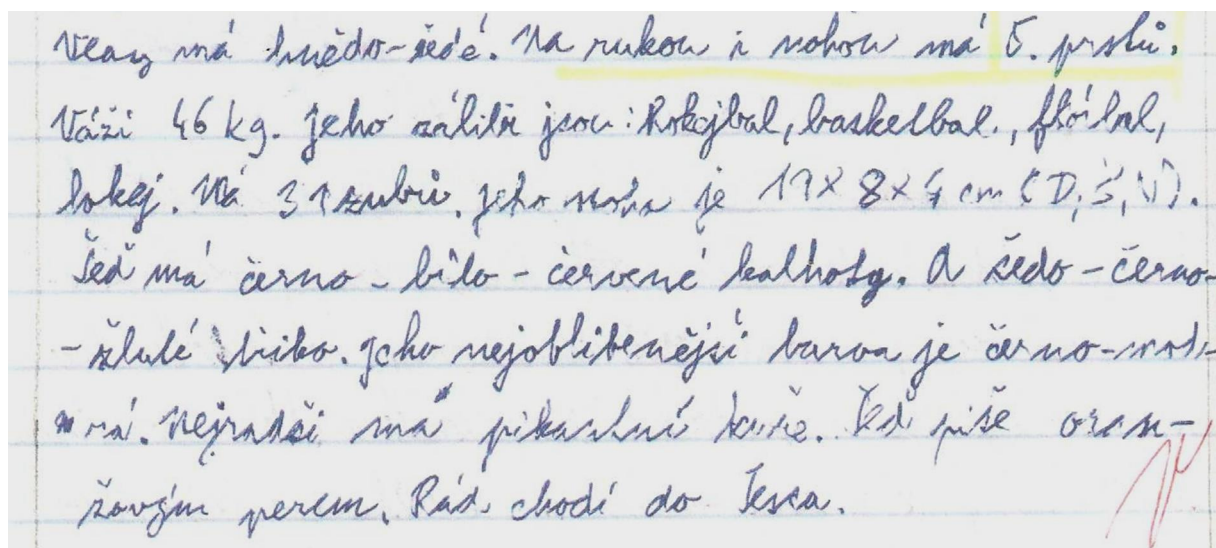 Vlasy má hnědo-šedé. Na rukou i nohou má 5. prstů.
Váží 46 kg. Jeho záliby jsou: Hokejbal, basketbal, flórbal,
hokej. Má 31 zubů. Jeho noha je 19 x 8 x 4 cm (D, Š, V).
Teď má černo - bílo - červené kalhoty. A šedo - černo-
- žluté triko. Jeho nejoblibenější barva je černo-mod-
rá. Nejradši má pikantní kuře. Teď píše oran-
žovým perem. Rád chodí do Tesca.